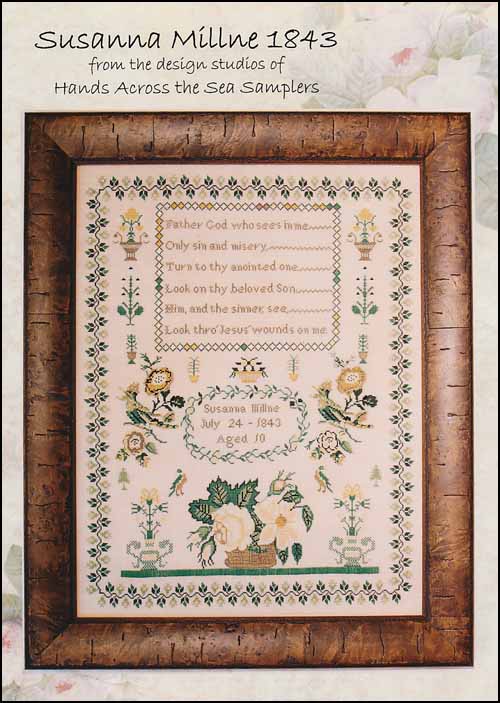 Susanna Millne 1843
from the design studios of
Hands Across the Sea Samplers
Father God who sees in me
Only sin and misery,
Turn to thy anointed one
Look on thy beloved Son,
Him, and the sinner, see,
Look thro' Jesus' wounds on me.
Susanna Millne
July 24 - 1843
Aged 10